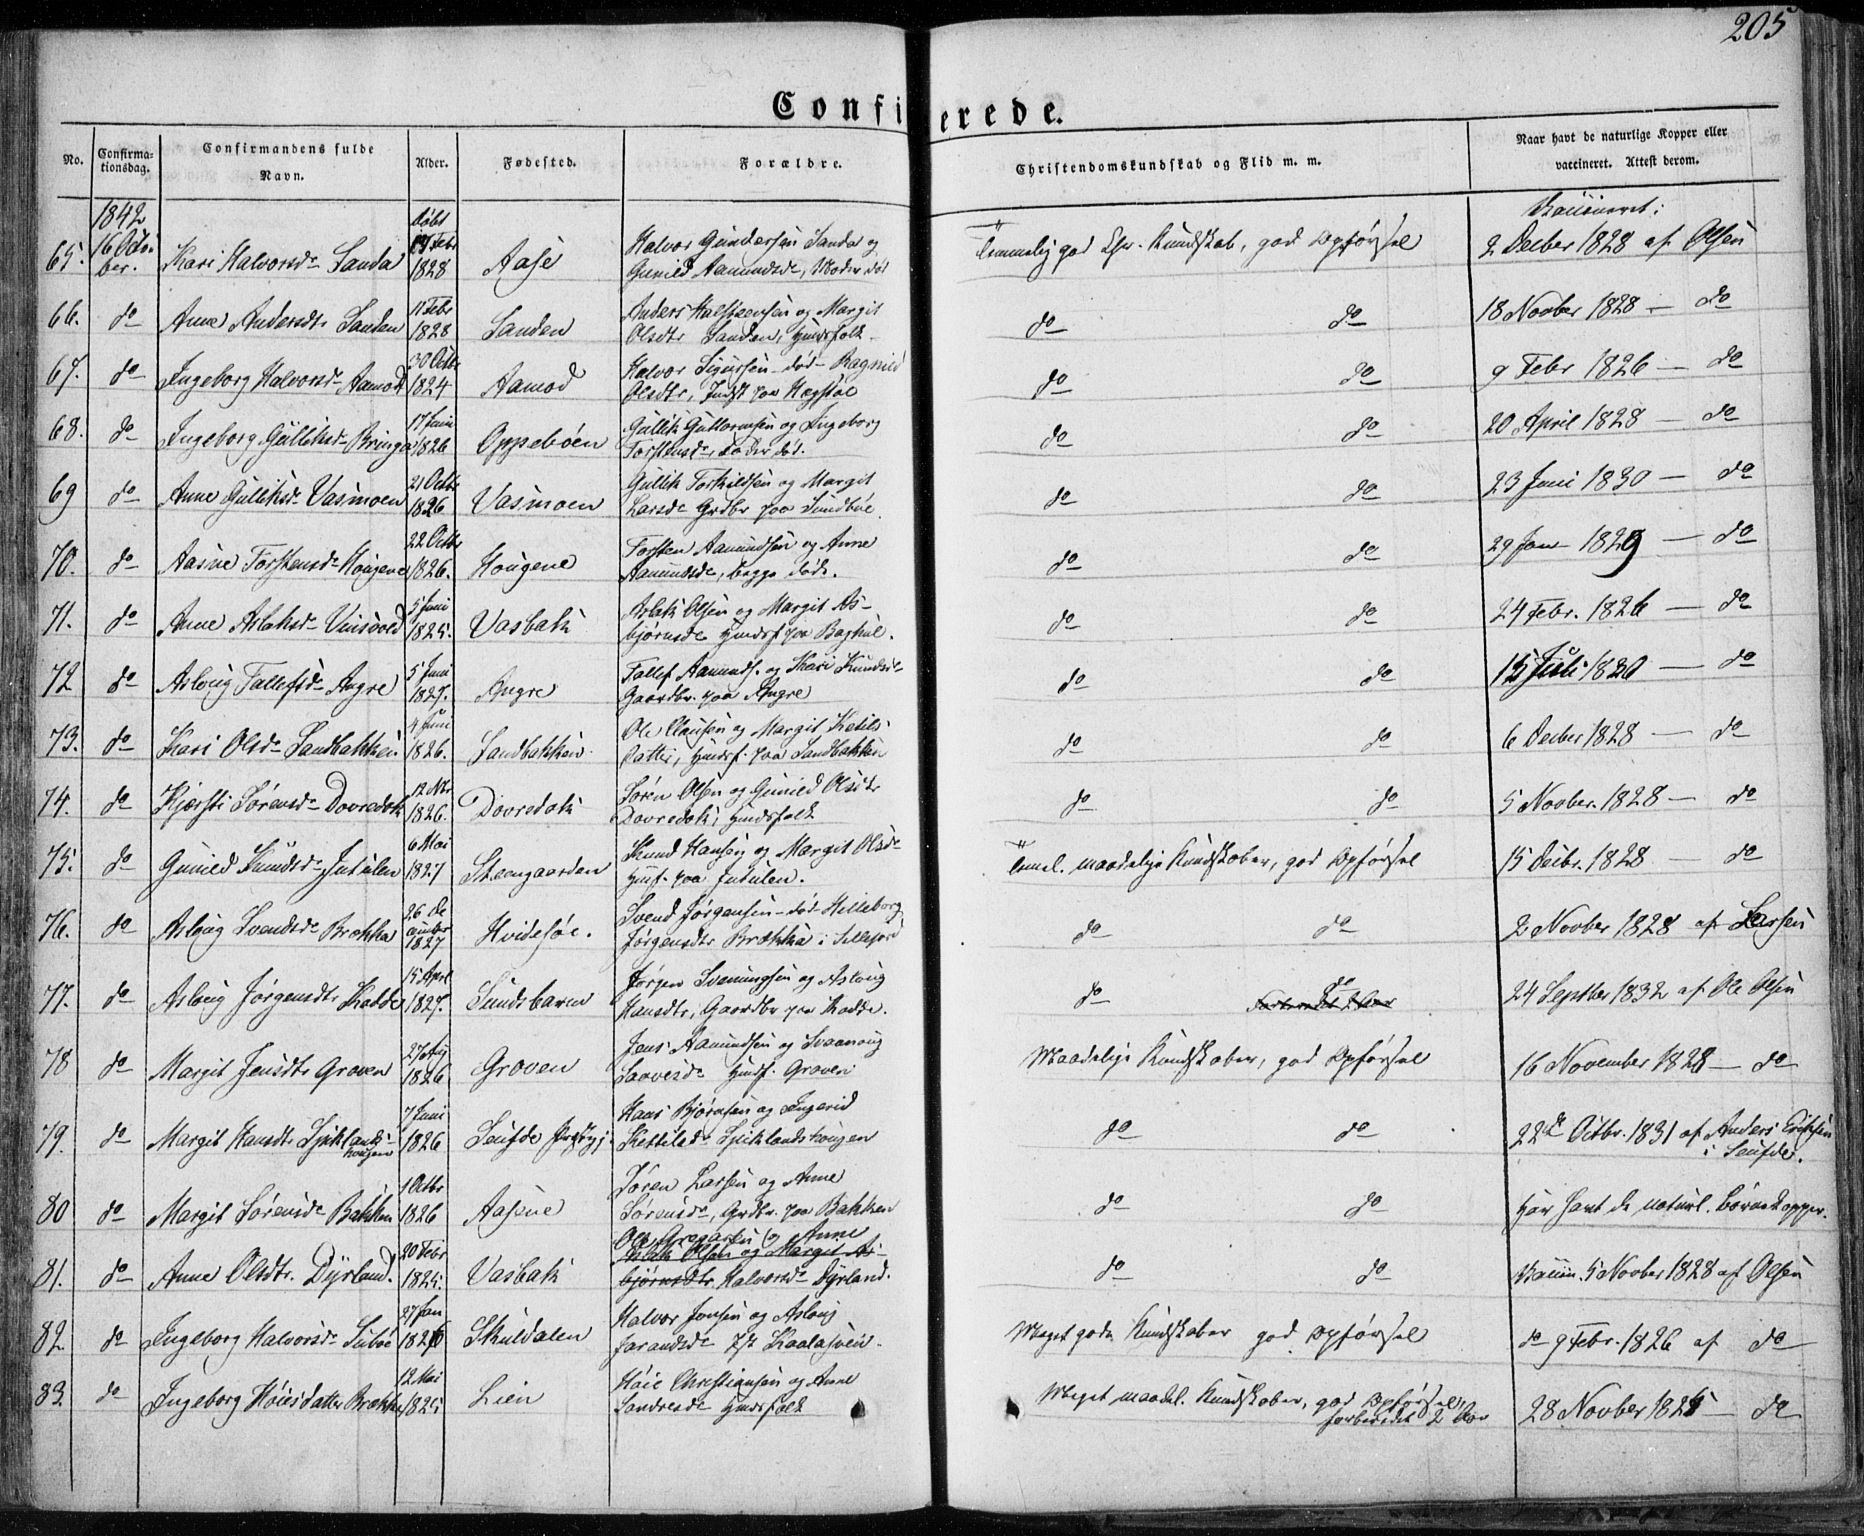 205
Confirerede.
No.
Confirma-
tionsdag.
Confirmandens fulde
Navn.
Alder.
Fødested.
Forældre.
Christendomskundskab og Flid m. m.
Naar havt de naturlige Kopper eller
vaccineret. Attest derom.
1842
døbt
Vaccineret:
65. 16 Octo-
ber.
Kari Halvorsdr Sanda
Febr
1828
Aase
Halvor Gundersen Sanda og
Gunild Aamundsdr, Moder død
Temmelig god Chr. Kundskab, god Opførsel
2 Decber 1828 af Olsen
66. do Anne Andersdtr Sanden
11 Febr
1828
Sanden
Anders Halsteensen og Margit
Olsdtr Sanden, Huusfolk
do do
18 Novber 1828 - do
67. do Ingeborg Halvorsdr Aamod
30 Octbr
1824
Aamod
Halvor Sigursen død Ragnild
Olsdtr, Inds paa Hægstøl
do do
9 Febr 1826 - do
68. do Ingeborg Gulliksdr Bringa
17 Juni
1826
Oppebøen
Gullik Guttormsen og Ingeborg
Torstensdr, Fader død.
do do
20 April 1828 - do
69 do Anne Gulliksdr Vasmoen
21 Octbr
1826
Vasmoen
Gullik Torkildsen og Margit
Larsdr Grdbr paa Sundbøe.
do do
23 Juni 1830 - do
70. do Aasne Torstensdr Hougene
22 Octbr
1826.
Hougene
Torsten Aamundsen og Anne
Aamundsdr, begge døde.
do do
29 Jan 1829 - do
71. do Anne Aslaksdr Vinsvold
5 Juni
1825.
Vasbak
Aslak Olsen og Margit As-
bjørnsdr Huusf. paa Baghul.
do do
24 Febr. 1826 - do
72 do Aslaug Tallefsdr Angre
5 Juni
1827.
Angre
Tallef Aamunds. og Kari Knudsdr
Gaardbr. paa Angre
do do
15 Juli 1830 - do
73. do Kari Olsdr Sandbakken
4 Juni
1826.
Sandbakken
Ole Clausen og Margit Ketils
Datter, Huusf. paa Sandbakken
do do
6 Decber 1828 - do
74. do Kjersti Sørensdr Dovredok
12 Nbr
1826.
Dovredok
Søren Olsen og Gunild Olsdtr
Dovredok, Huusfolk
do do
5 Novber. 1828 - do
75. do Gunild Knudsdr Jutulen
6 Mai
1827
Steengaarden
Knud Hansen og Margit Olsdr
Huusf. paa Jutulen.
Teml. maadelige Kundskaber, god Opførsel
15 Decbr. 1828 - do
76. do Aslaug Svendsdr Brækka
26 De
cember
1827
Hvidesøe.
Svend Jørgensen død Helleborg
Jørgensdtr Brækka i Sillejord
do do
2 Novber 1828 af Larsen
77. do Aslaug Jørgensdtr Kodde
15 April
1827.
Sundsbarm
Jørgen Svenungsen og Aslaug
Hansdtr, Gaardbr paa Kodde.
do do
24 Septber 1832 af Ole Olsen
78 do Margit Jensdtr Groven
27 Aug
1826
Groven
Jens Aamundsen og Svanaug
Saavesdr Huusf. Groven
Maadelige Kundskaber, god Opførsel
16 November 1828 - do
79. do Margit Hansdtr Spiklands-
hougen
7 Juni
1826
Seufde Prgj.
Hans Bjørnsen og Ingerid
Kettilsdr Spiklandshougen
do do
22de Octbr. 1831 af Anders Eriksen
i Seufde.
80 do Margit Sørensdr Bakken
1 Octbr
1826
Aasene
Søren Larsen og Anne
Sørensdr, Grdbr. paa Bakken
do do
Har havt de naturl. Børnekopper.
81. do Anne Olsdtr. Dyrland.
20 Febr
1825.
Vasbak
Ole Gregarsen og Anne
Aslak Olsen og Margit As-
bjørnsdtr Halvorsdr Dyrland.
do do
Vaccin. 5 Novber 1828 af Olsen
82. do Ingeborg Halvorsdr Subøe
27 Jan
1826
Skuldalen
Halvor Jonsen og Aslaug
Jarandsdr Kaalasveen.
Meget gode Kundskaber god Opførsel
do 9 Febr. 1826 af do
83. do Ingeborg Høiesdatter Brække
12 Mai
1825
Lien
Høie Christiansen og Anne
Sondresdr Huusfolk
Meget maadel. Kundskaber, god Opførsel,
forberedet 2 Aar
28 Novber 1825 - do